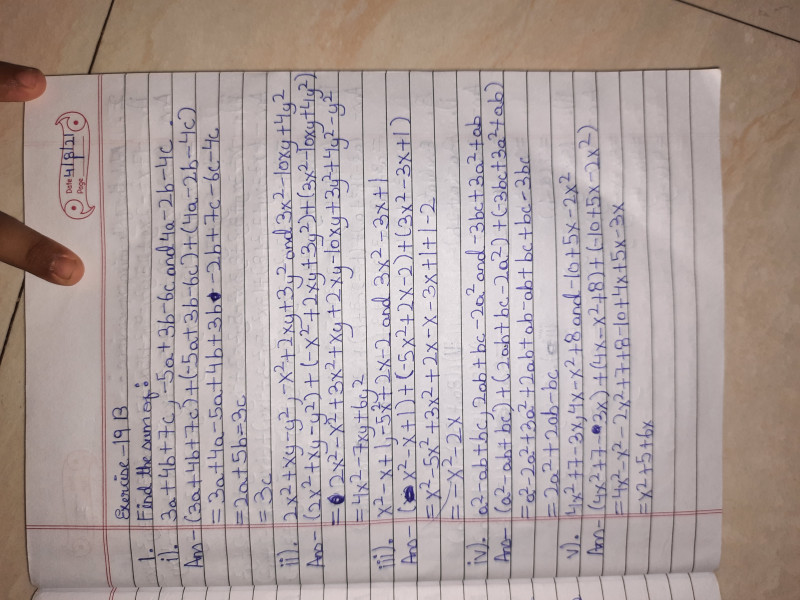 Date 4/8/21
Page
Exercise-19 B
1. Find the sum of:
i). 3a+4b+7c, -5a+3b-6c and 4a-2b-4c
Ans- (3a+4b+7c)+(-5a+3b-6c)+(4a-2b-4c)
=3a+4a-5a+4b+3b -2b+7c-6c-4c
=2a+5b=3c
=3c
ii). 2x²+xy-y², -x²+2xy+3y² and 3x²-10xy+4y²
Ans- (2x²+xy-y²)+(-x²+2xy+3y²)+(3x²-10xy+4y²)
= 2x²-x²+3x²+xy+2xy-10xy+3y²+4y²-y²
=4x²-7xy+6y²
iii). x²-x+1, -5x²+2x-2 and 3x²-3x+1
Ans- (x²-x+1)+(-5x²+2x-2)+(3x²-3x+1)
=x²-5x²+3x²+2x-x-3x+1+1-2
=-x²-2x
iv). a²-ab+bc, 2ab+bc-2a² and -3bc+3a²+ab
Ans- (a²-ab+bc)+(2ab+bc-2a²)+(-3bc+3a²+ab)
=a²-2a²+3a²+2ab+ab-ab+bc+bc-3bc
=2a²+2ab-bc
v). 4x²+7-3x, 4x-x²+8 and -10+5x-2x²
Ans- (4x²+7-3x)+(4x-x²+8)+(-10+5x-2x²)
=4x²-x²-2x²+7+8-10+4x+5x-3x
=x²+5+6x